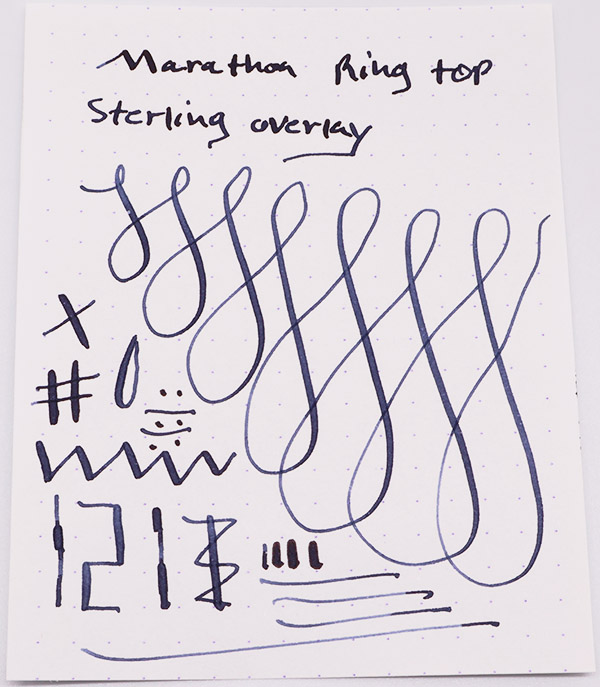 Marathon Ring top
Sterling overlay